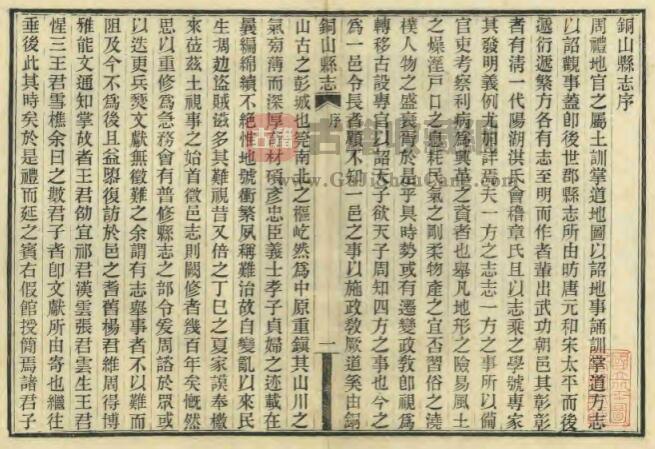 銅山縣志序
周禮地官之屬土訓掌道地圖以詔地事誦訓掌道方志
以詔觀事蓋卽後世郡縣志所由昉唐元和宋太平而後
遞衍遞繁方各有志至明而作者輩出武功朝邑其彰彰
者有清一代陽湖淇
會稽章氏且以志乘之學號專家
其發明義例尤加詳焉夫一方之志志一方之事所以備
官吏考察利病爲興革之資者也舉凡地形之險易風土
之燥溼戶口之息耗民氣之剛柔物產之宜否習俗之澆
樸人物之盛衰胥於是乎具時勢或有遷變政敎卽視爲
轉移古設專官以詔天子欲天子周知四方之事也今之
爲一邑令長者顧不知一邑之事以施政敎厥道奚由銅
銅山縣志
序
一
山古之彭城也筦南北之樞屹然爲中原重鎭其山川之
氣旁薄而深厚
材碩彥忠臣義士孝子貞婦之迹載在
曩編綿續不絕惟地號衝繁夙稱難治故自變亂以來民
生凋
盜賊滋多其難視昔又倍之丁巳之夏家謨奉檄
來莅茲土視事之始首徵邑志則闕修者幾百年矣慨然
思以重修爲急務會有普修縣志之部令爰周諮於眾或
以迭更兵燹文獻無徵難之余謂有志舉事者不以難而
阻及今不爲後且益
復訪於邑之耆舊楊君維周得博
雅能文通知掌故者王君劭宜祁君漢雲張君雲生王君
惺三王君雪樵余曰之數君子者卽文獻所由寄也繼往
垂後此其時矣於是禮而延之賓右假館授簡焉諸君子
古籍
www.GuJishuCang.Com